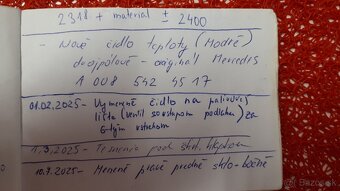 2318 + materiál ± 2400
- Nové čidlo teploty (Modré)
dvojpólové - originál Mercedes
A 008 542 45 17
01.02.2025 - Vymenené čidlo na palivovej
lište (ventil so vstupom podtlaku) za
6-tym vstrekom
1.3.2025 - Tesnenia pod
10.7.2025 - Menené predné sklo - bočné
Bazoš.sk